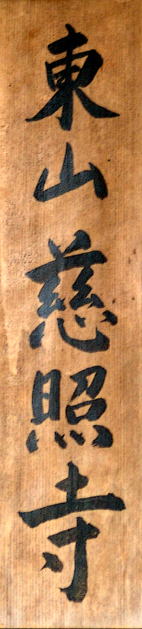 東山慈照寺